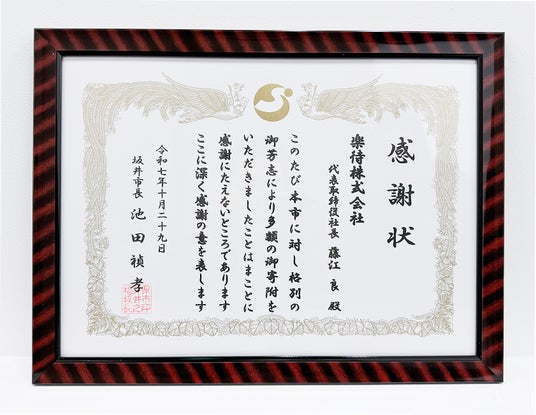 感謝状
楽待株式会社
代表取締役社長 藤江 良 殿
このたび本市に対し格別の
御芳志により多額の御寄附を
いただきましたことはまことに
感謝にたえないところであります
ここに深く感謝の意を表します
令和七年十月二十九日
坂井市長 池田禎孝